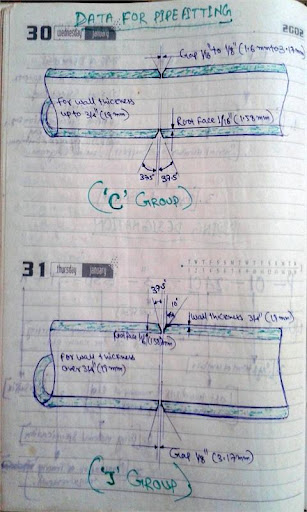 DATA FOR PIPEFITTING
30 wednesday january
2002
Gap 1/16" to 1/8" (1.6mm to 3.17mm)
For wall thickness
up to 3/4" (19mm)
Root Face 1/16" (1.58mm)
37.5 37.5°
('C' GROUP)
31 thursday january
37.5°
10°
wall thickness 3/4" (19mm)
Root face 1/16" (1.58mm)
For wall thickness
over 3/4" (19mm)
Gap 1/8" (3.17mm)
('J' GROUP)